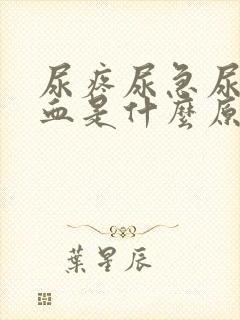 尿疼尿急尿
血是什麼原
葉星辰